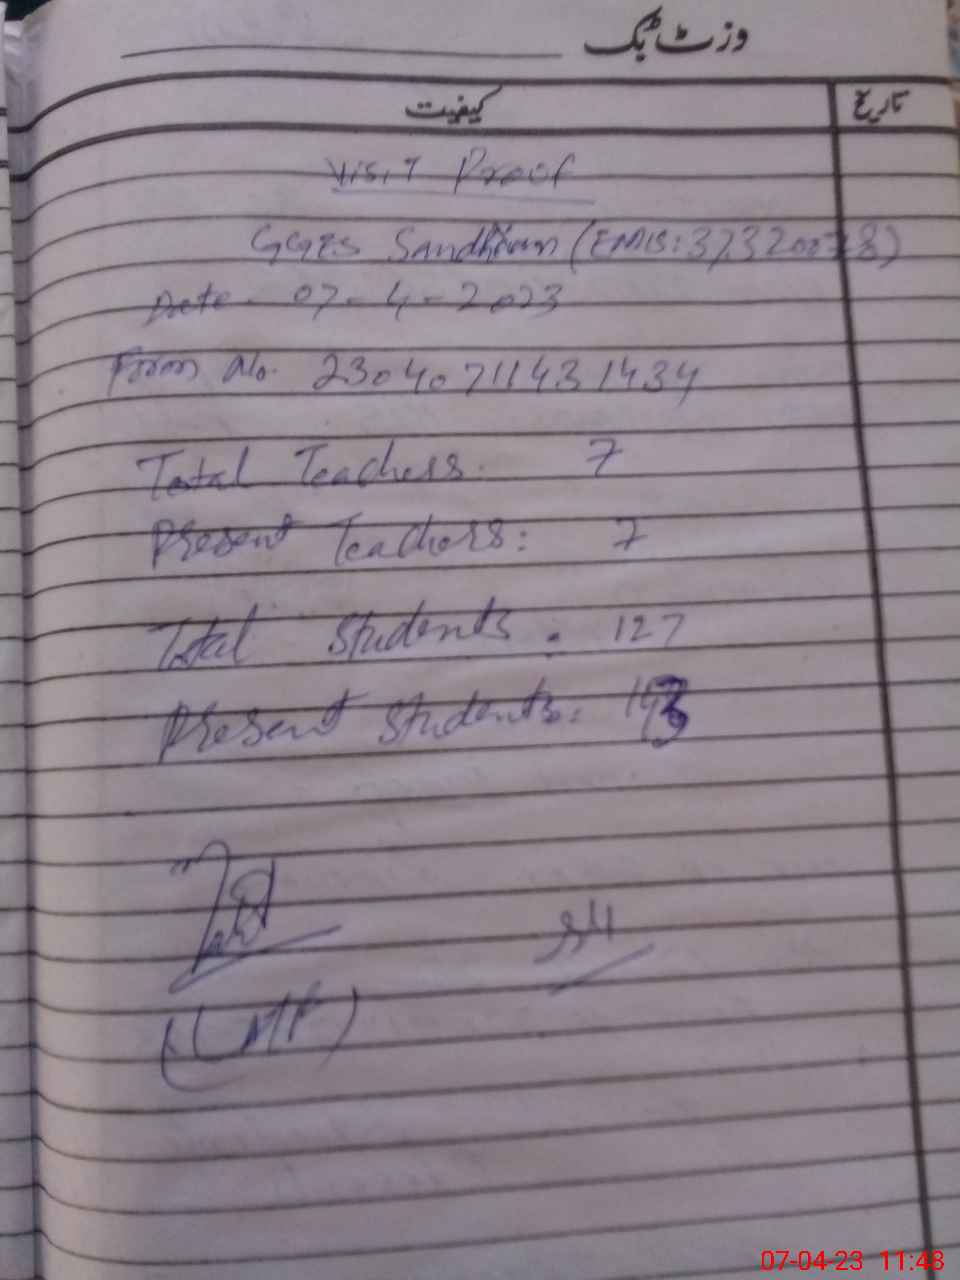 وزٹ بک
کیفیت تاریخ
Visit Proof
GGES (EMIS: 37320078)
Date - 07-4-2023
From No. 23040711431434
Total Teachers. 7
Present Teachers: 7
Total Students. 127
Present Students:
07-04-23 11:48